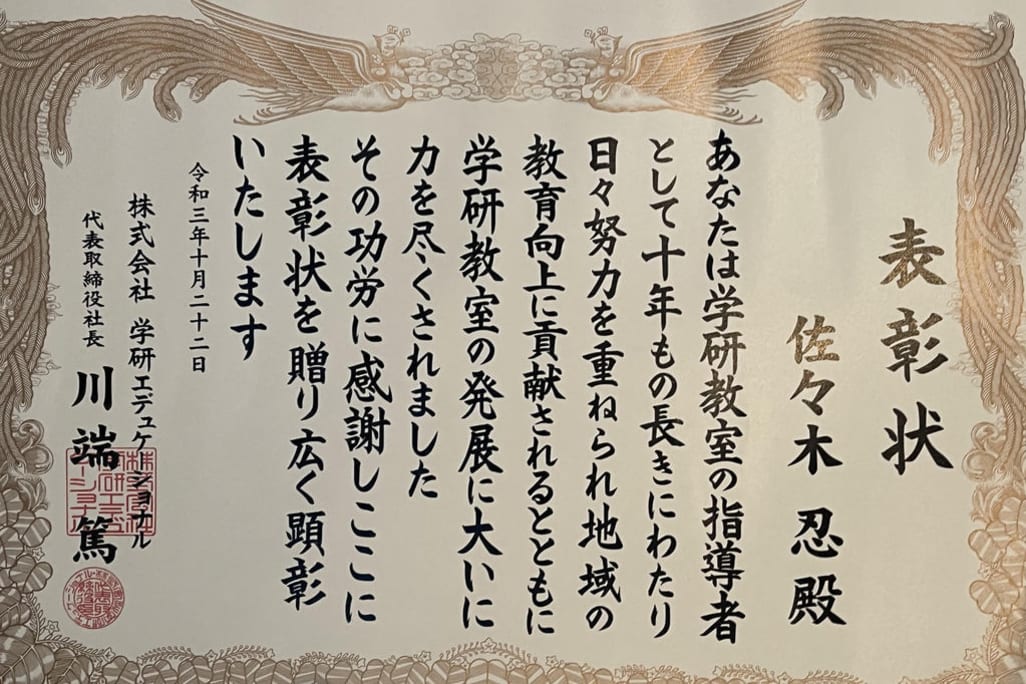 表彰状
佐々木 忍 殿
あなたは学研教室の指導者
として十年もの長きにわたり
日々努力を重ねられ地域の
教育向上に貢献されるとともに
学研教室の発展に大いに
力を尽くされました
その功労に感謝しここに
表彰状を贈り広く顕彰
いたします
令和三年十月二十二日
株式会社 学研エデュケーショナル
代表取締役社長 川端 篤